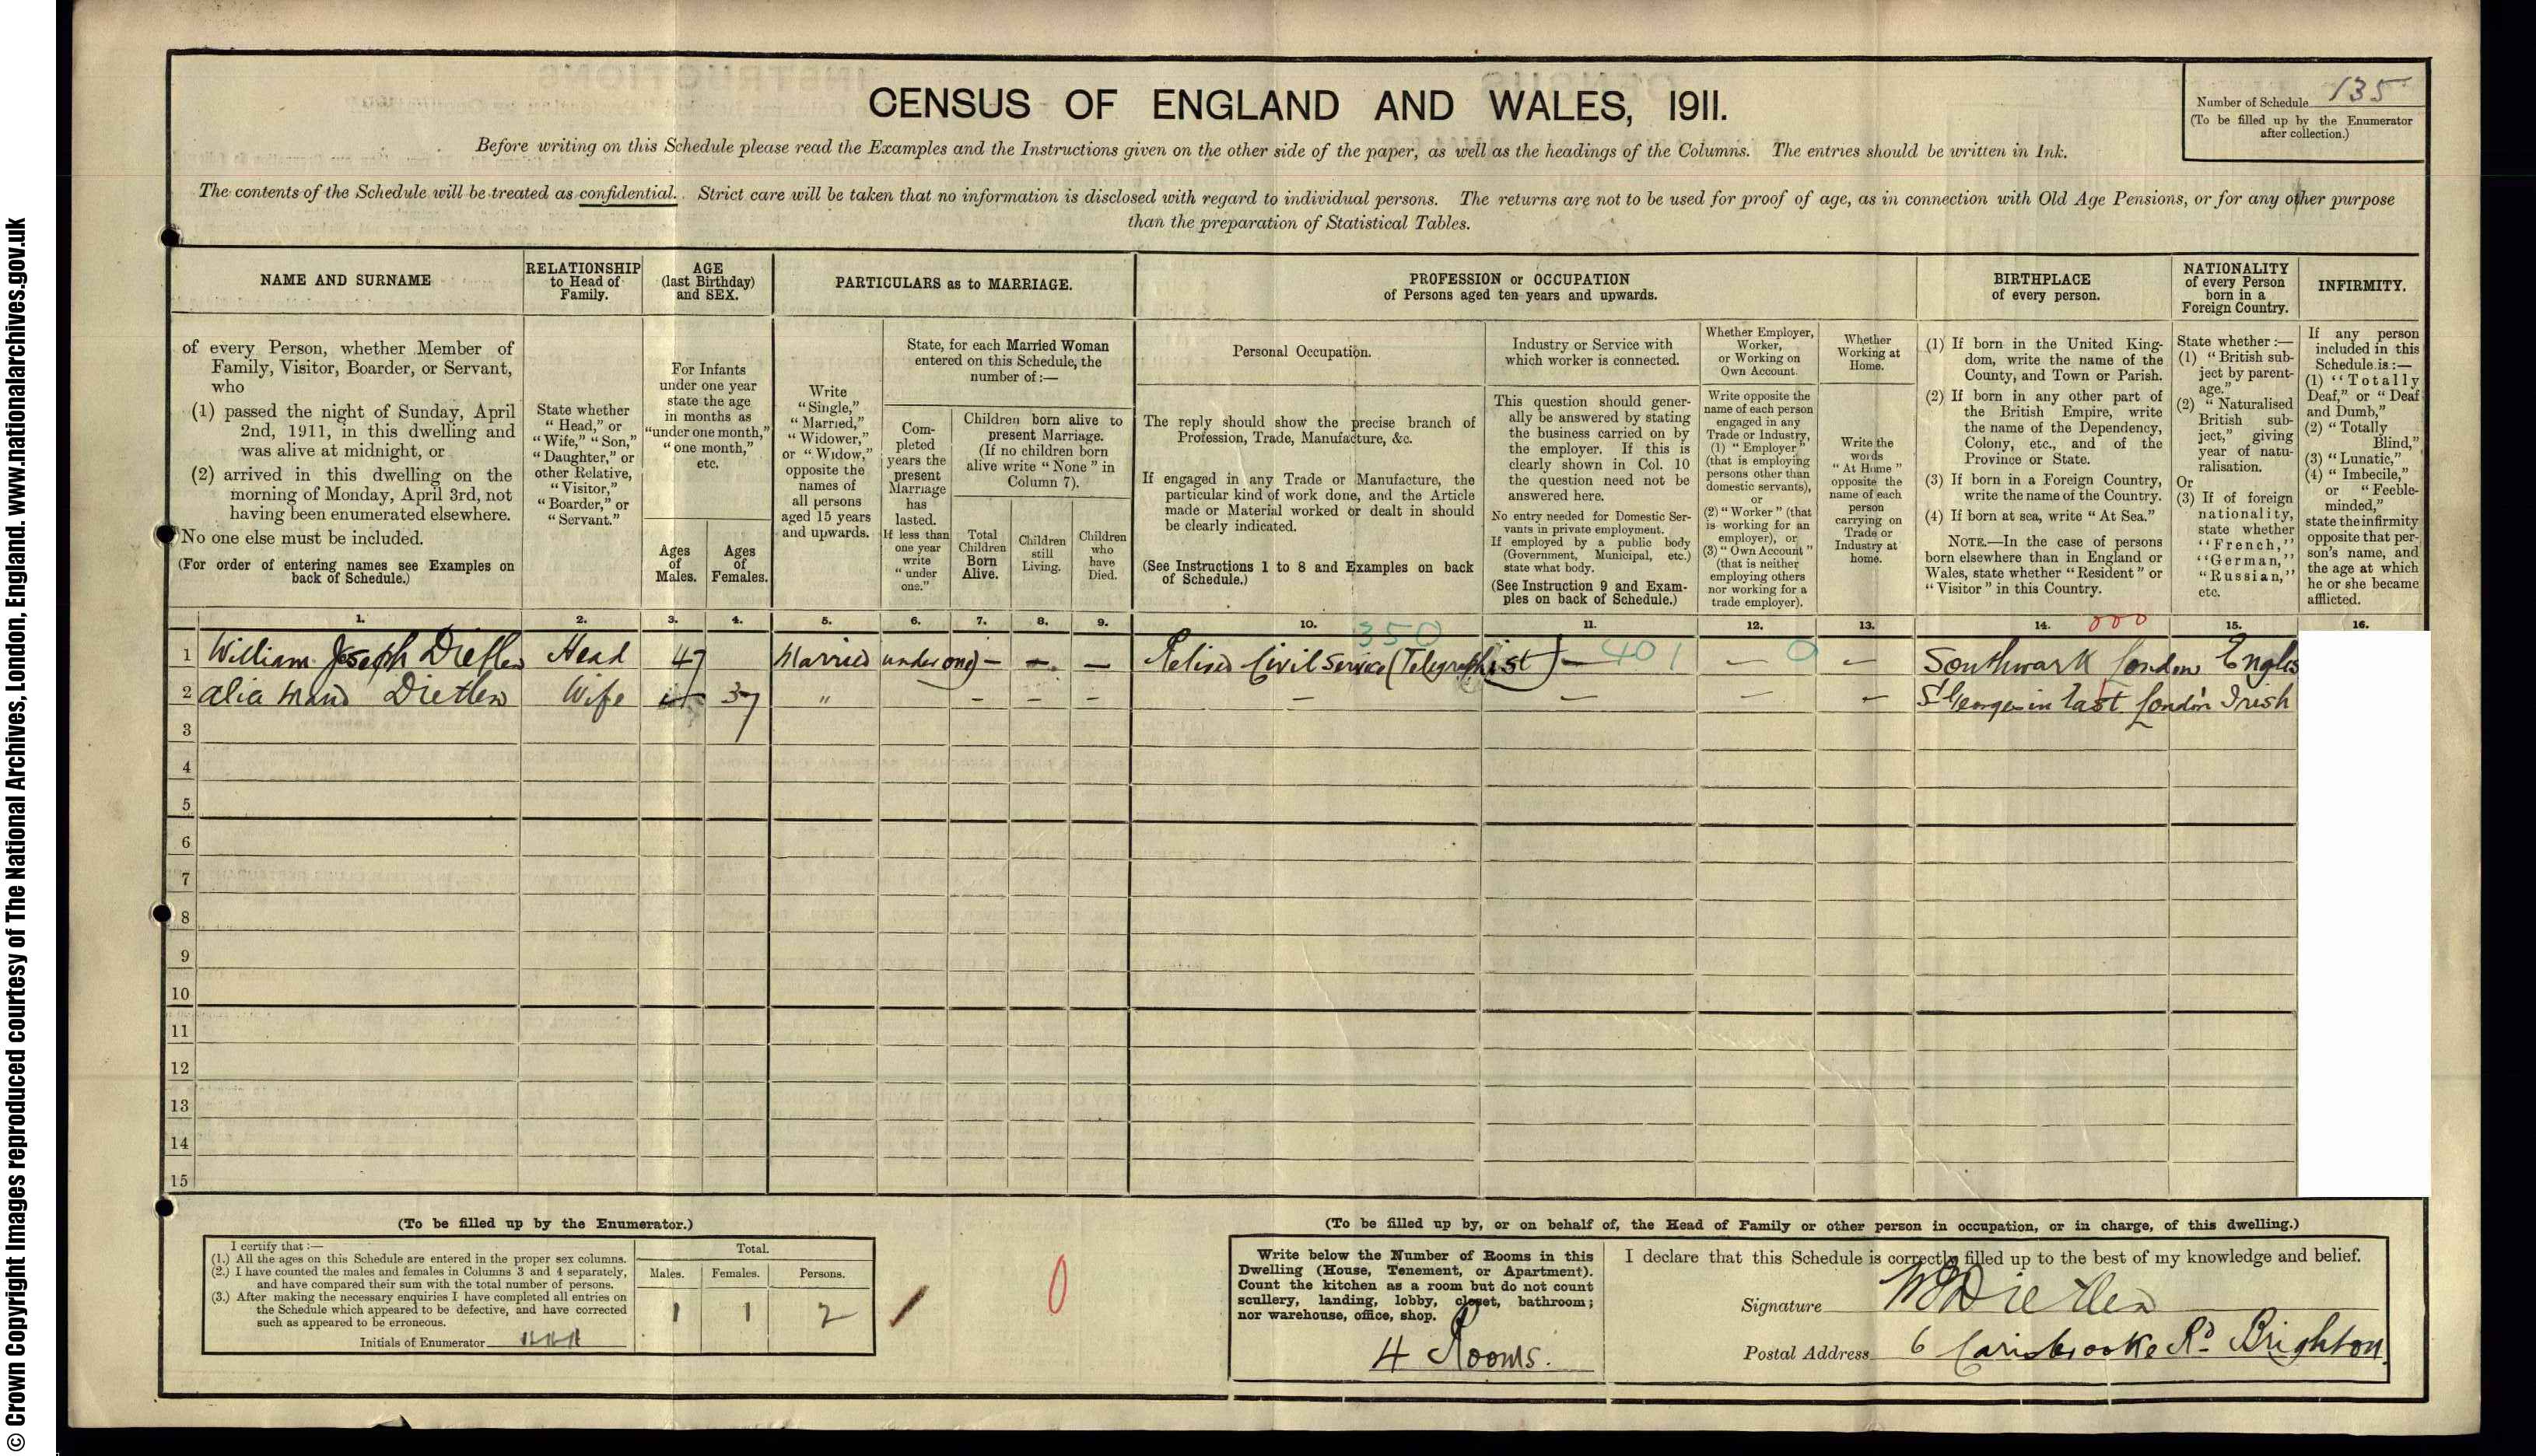 © Crown Copyright Images reproduced courtesy of The National Archives, London, England. www.nationalarchives.gov.uk
CENSUS OF ENGLAND AND WALES, 1911.
Number of Schedule 135
(To be filled up by the Enumerator
after collection.)
Before writing on this Schedule please read the Examples and the Instructions given on the other side of the paper, as well as the headings of the Columns. The entries should be written in Ink.
The contents of the Schedule will be treated as confidential. Strict care will be taken that no information is disclosed with regard to individual persons. The returns are not to be used for proof of age, as in connection with Old Age Pensions, or for any other purpose
than the preparation of Statistical Tables.
NAME AND SURNAME
of every Person, whether Member of
Family, Visitor, Boarder, or Servant,
who
(1) passed the night of Sunday, April
2nd, 1911, in this dwelling and
was alive at midnight, or
(2) arrived in this dwelling on the
morning of Monday, April 3rd, not
having been enumerated elsewhere.
No one else must be included.
(For order of entering names see Examples on
back of Schedule.)
RELATIONSHIP
to Head of
Family.
State whether
"Head," or
"Wife," "Son,"
"Daughter," or
other Relative,
"Visitor,"
"Boarder," or
"Servant."
AGE
(last Birthday)
and SEX.
For Infants
under one year
state the age
in months as
"under one month,"
"one month,"
etc.
Ages
of
Males.
Ages
of
Females.
PARTICULARS as to MARRIAGE.
Write
"Single,"
"Married,"
"Widower,"
or "Widow,"
opposite the
names of
all persons
aged 15 years
and upwards.
State, for each Married Woman
entered on this Schedule, the
number of:—
Com-
pleted
years the
present
Marriage
has
lasted.
If less than
one year
write
"under
one."
Children born alive to
present Marriage.
(If no children born
alive write "None" in
Column 7).
Total
Children
Born
Alive.
Children
still
Living.
Children
who
have
Died.
PROFESSION or OCCUPATION
of Persons aged ten years and upwards.
Personal Occupation.
The reply should show the precise branch of
Profession, Trade, Manufacture, &c.
If engaged in any Trade or Manufacture, the
particular kind of work done, and the Article
made or Material worked or dealt in should
be clearly indicated.
(See Instructions 1 to 8 and Examples on back
of Schedule.)
Industry or Service with
which worker is connected.
This question should gener-
ally be answered by stating
the business carried on by
the employer. If this is
clearly shown in Col. 10
the question need not be
answered here.
No entry needed for Domestic Ser-
vants in private employment.
If employed by a public body
(Government, Municipal, etc.)
state what body.
(See Instruction 9 and Exam-
ples on back of Schedule.)
Whether Employer,
Worker,
or Working on
Own Account.
Write opposite the
name of each person
engaged in any
Trade or Industry,
(1) "Employer"
(that is employing
persons other than
domestic servants),
or
(2) "Worker" (that
is working for an
employer), or
(3) "Own Account"
(that is neither
employing others
nor working for a
trade employer).
Whether
Working at
Home.
Write the
words
"At Home"
opposite the
name of each
person
carrying on
Trade or
Industry at
home.
BIRTHPLACE
of every person.
(1) If born in the United King-
dom, write the name of the
County, and Town or Parish.
(2) If born in any other part of
the British Empire, write
the name of the Dependency,
Colony, etc., and of the
Province or State.
(3) If born in a Foreign Country,
write the name of the Country.
(4) If born at sea, write "At Sea."
NOTE.—In the case of persons
born elsewhere than in England or
Wales, state whether "Resident" or
"Visitor" in this Country.
NATIONALITY
of every Person
born in a
Foreign Country.
State whether:—
(1) "British sub-
ject by parent-
age."
(2) "Naturalised
British sub-
ject," giving
year of natu-
ralisation.
Or
(3) If of foreign
nationality,
state whether
"French,"
"German,"
"Russian,"
etc.
INFIRMITY.
If any person
included in this
Schedule is:—
(1) "Totally
Deaf," or "Deaf
and Dumb,"
(2) "Totally
Blind,"
(3) "Lunatic,"
(4) "Imbecile,"
or "Feeble-
minded,"
state the infirmity
opposite that per-
son's name, and
the age at which
he or she became
afflicted.
1. 2. 3. 4. 5. 6. 7. 8. 9. 10. 11. 12. 13. 14. 15. 16.
350 000
1 William Joseph Dietlen Head 47 Married under one) – – – Retired Civil Service (Telegraphist) – 401 – 0 – Southwark London
2 Wife 37 " – – – – – – – St Georges in East London Irish
3
4
5
6
7
8
9
10
11
12
13
14
15
(To be filled up by the Enumerator.)
I certify that:—
(1.) All the ages on this Schedule are entered in the proper sex columns.
(2.) I have counted the males and females in Columns 3 and 4 separately,
and have compared their sum with the total number of persons.
(3.) After making the necessary enquiries I have completed all entries on
the Schedule which appeared to be defective, and have corrected
such as appeared to be erroneous.
Initials of Enumerator
Total.
Males. Females. Persons.
1 1 2
0
(To be filled up by, or on behalf of, the Head of Family or other person in occupation, or in charge, of this dwelling.)
Write below the Number of Rooms in this
Dwelling (House, Tenement, or Apartment).
Count the kitchen as a room but do not count
scullery, landing, lobby, closet, bathroom;
nor warehouse, office, shop.
4 Rooms.
I declare that this Schedule is correctly filled up to the best of my knowledge and belief.
Signature WJ Dietlen
Postal Address 6 Carisbrooke Rd Brighton